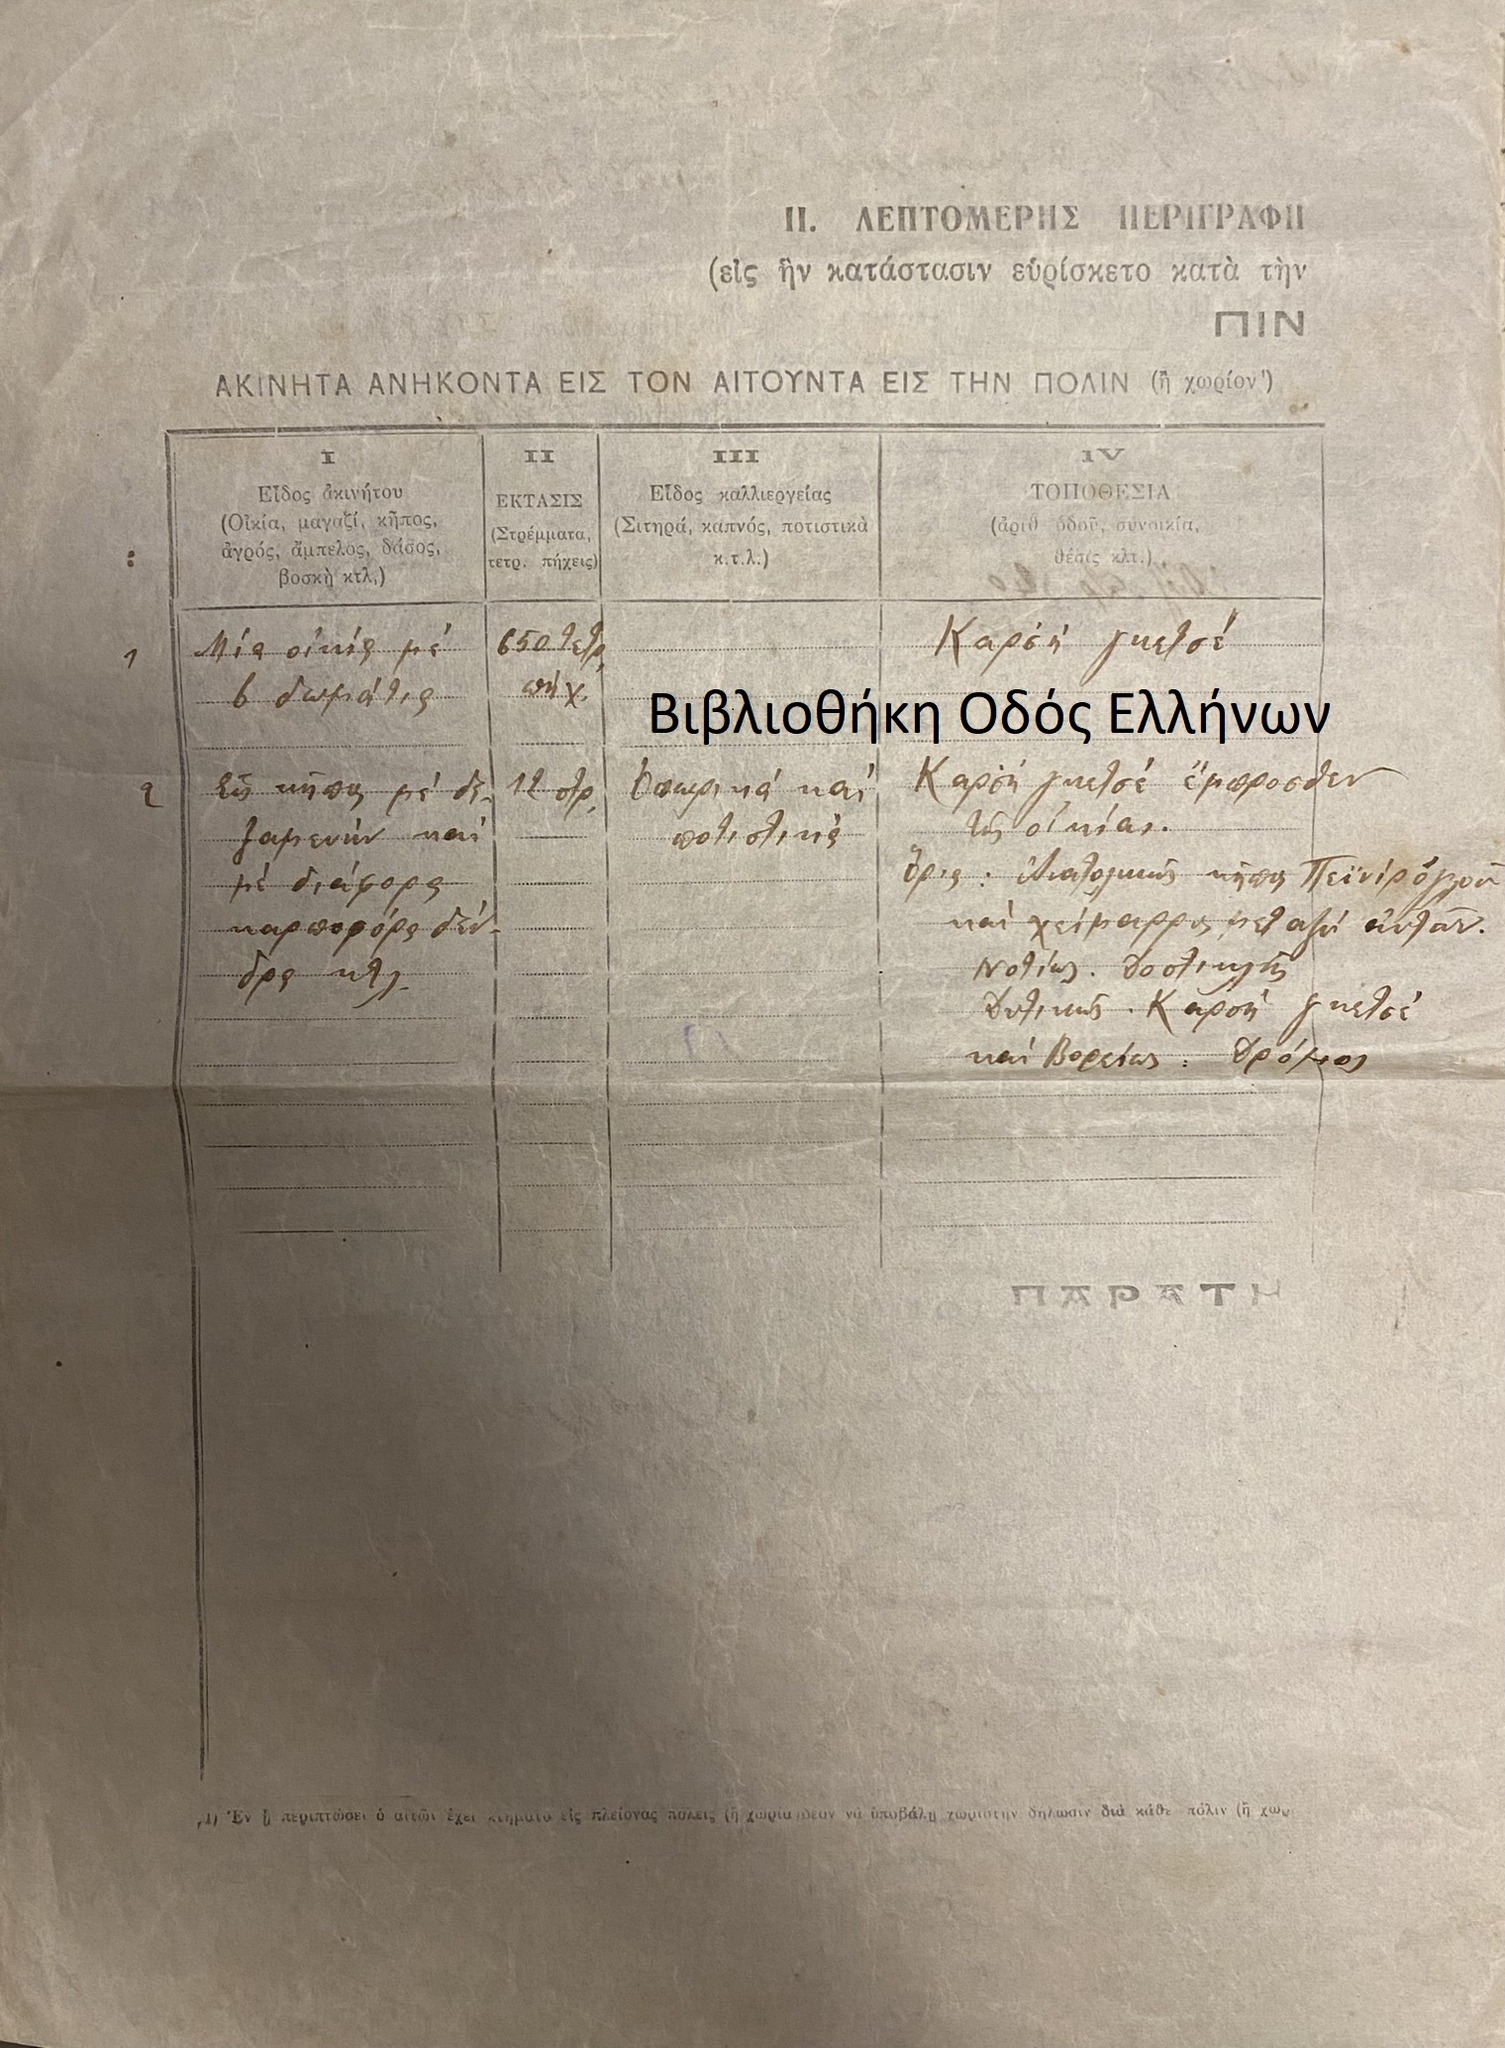 II. ΛΕΠΤΟΜΕΡΗΣ ΠΕΡΙΓΡΑΦΗ
(εἰς ἣν κατάστασιν εὑρίσκετο κατὰ τὴν
ΠΙΝ
ΑΚΙΝΗΤΑ ΑΝΗΚΟΝΤΑ ΕΙΣ ΤΟΝ ΑΙΤΟΥΝΤΑ ΕΙΣ ΤΗΝ ΠΟΛΙΝ (ἢ χωρίον¹)
I
Εἶδος ἀκινήτου
(Οἰκία, μαγαζί, κῆπος,
ἀγρός, ἄμπελος, δάσος,
βοσκὴ κτλ.)
II
ΕΚΤΑΣΙΣ
(Στρέμματα,
τετρ. πήχεις)
III
Εἶδος καλλιεργείας
(Σιτηρά, καπνός, ποτιστικὰ
κ.τ.λ.)
IV
ΤΟΠΟΘΕΣΙΑ
(ἀριθ. ὁδοῦ, συνοικία,
θέσις κλτ.)
1
Μία οἰκία μέ
6 δωμάτια
650 τετρ.
πήχ.
Καρσή γκετσέ
Βιβλιοθήκη Οδός Ελλήνων
2
Εἷς κῆπος μέ δε-
ξαμενήν καί
μέ διάφορα
καρποφόρα δέν-
δρα κτλ.
12 στρ.
Ὀπωρικά καί
ποτιστικά
Καρσή γκετσέ ἔμπροσθεν
τῆς οἰκίας.
Ὅρια: Ἀνατολικῶς κῆπος
καί χείμαρρος μεταξύ αὐτῶν.
Νοτίως.
Δυτικῶς. Καρσή γκετσέ
καί Βορείως: Δρόμος
ΠΑΡΑΤΗ
(1) Ἐν ᾗ περιπτώσει ὁ αἰτῶν ἔχει κτήματα εἰς πλείονας πόλεις (ἢ χωρία) δέον νὰ ὑποβάλῃ χωριστὴν δήλωσιν διὰ κάθε πόλιν (ἢ χωρ